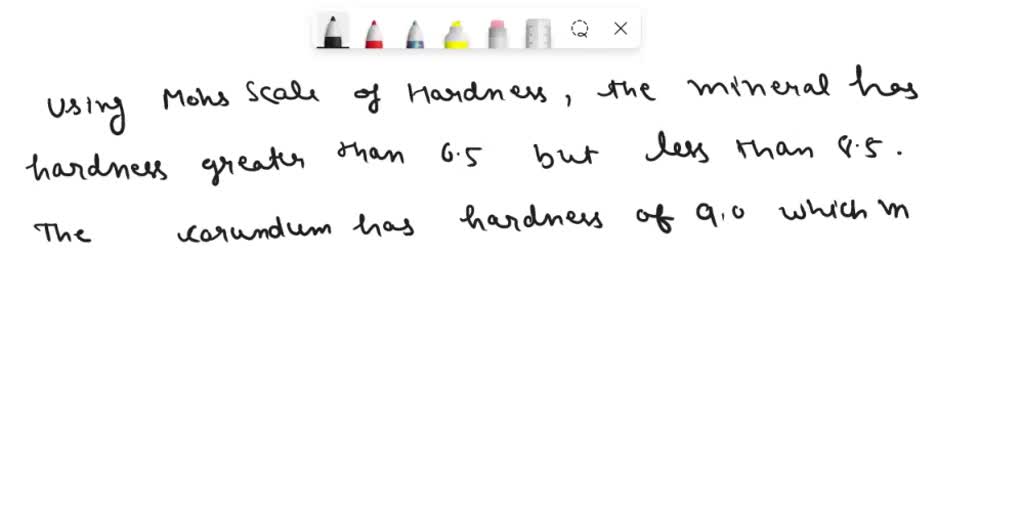 Using Mohs Scale of Hardness, the mineral has
hardness greater than 6.5 but less than 8.5.
The corundum has hardness of 9.0 which m